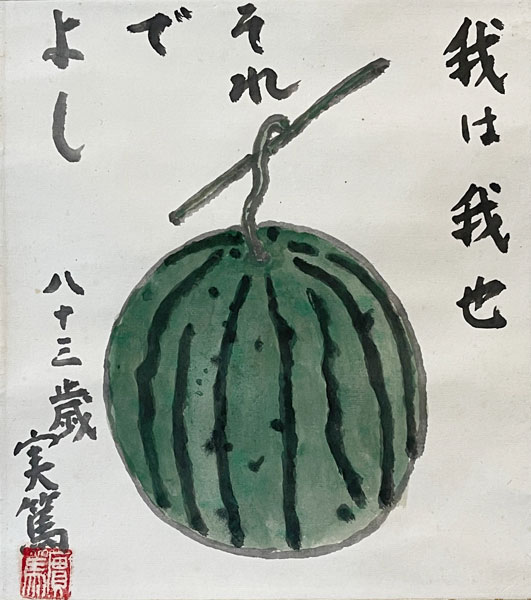 我は我也
それ
で
よし
八十三歳
実篤
實篤